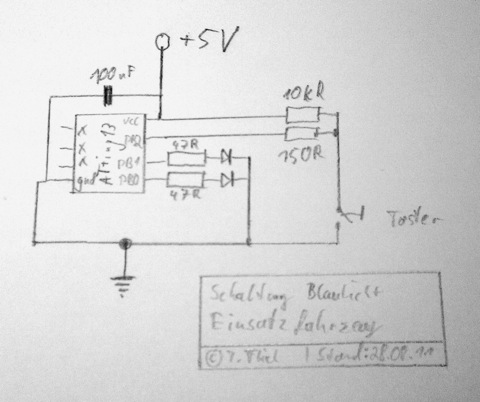 +5V
100nF
10kR
VCC
PB2
150R
47R
X
X
X
ATtiny13
PB1
gnd
PB0
47R
Taster
Schaltung Blaulicht
Einsatzfahrzeug
© T. Thiel | Stand: 28.08.11